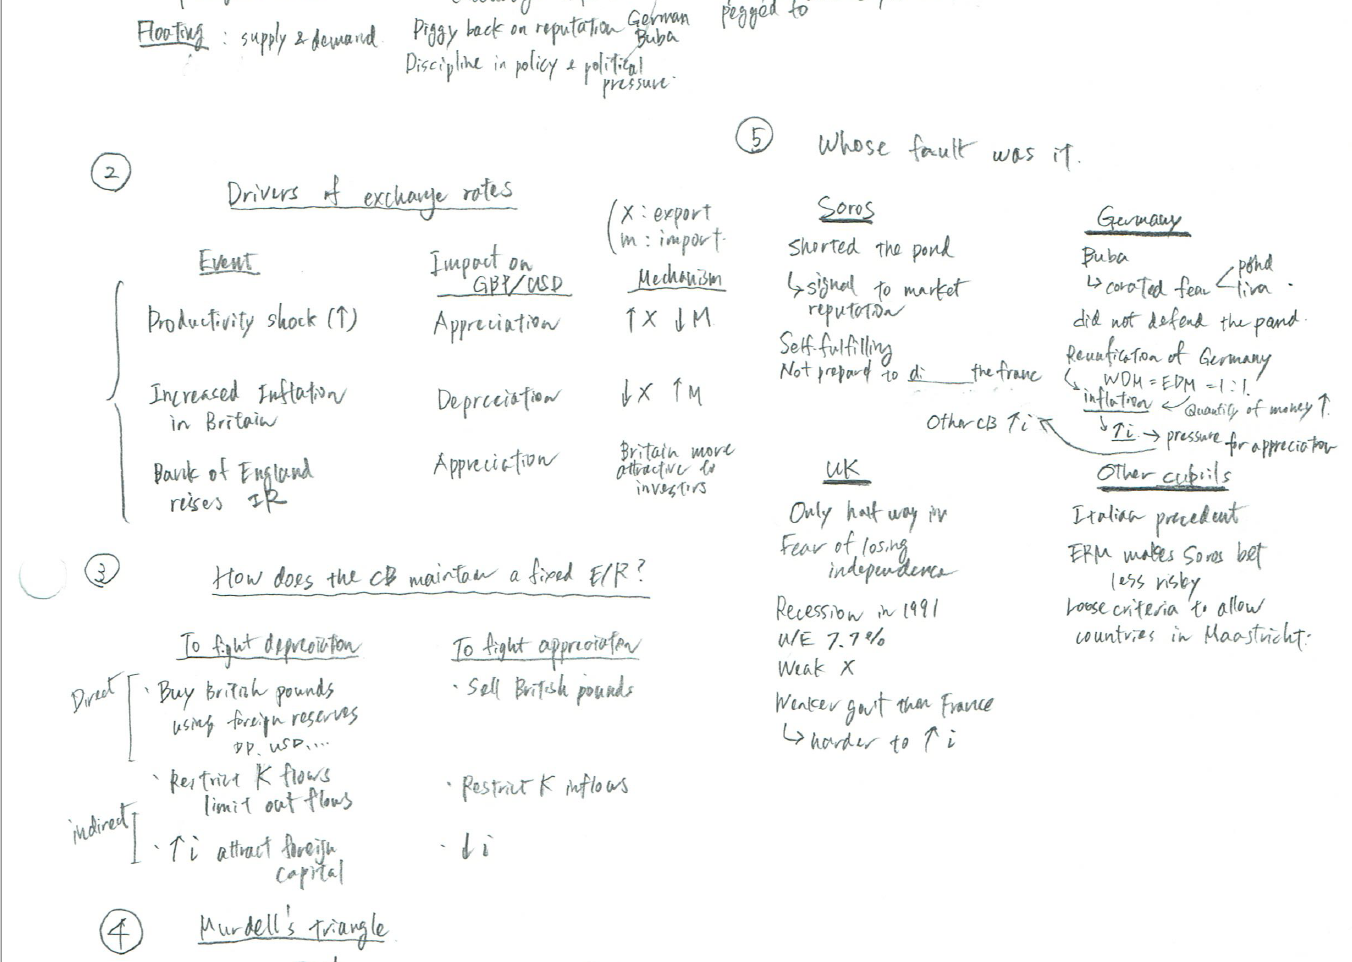 Floating : supply & demand
Piggy back on reputation German
Buba
pegged to
Discipline in policy & political
pressure.
②
Drivers of exchange rates
(X : export
m : import.
Event
Impact on
GBP/USD
Mechanism
Productivity shock (↑)
Appreciation
↑X ↓M
Increased Inflation
in Britain
Depreciation
↓X ↑M
Bank of England
reises IR
Appreciation
Britain more
attractive to
investors
③
How does the CB maintain a fixed E/R?
To fight depreciation
To fight appreciation
Direct
· Buy British pounds
using foreign reserves
USD....
· Sell British pounds
indirect
· Restrict K flows
limit out flows
· Restrict K inflows
· ↑i attract foreign
capital
· ↓i
④
Murdell's triangle
⑤
Whose fault was it.
Soros
Shorted the pond
↳ signal to market
reputation
Self-fulfilling
Not prepard to di____ the franc
Germany
Buba
↳ corated fear < pond
lira .
did not defend the pond.
Reunification of Germany
↳ WDM = EDM = 1:1
inflation ← Quantity of money ↑.
↳ ↑i → pressure for appreciation
Other CB ↑i
UK
Only half way in
Fear of losing
independence
Recession in 1991
U/E 7.7%
Weak X
Weaker gov't than France
↳ harder to ↑i
Other culprils
Italian precedent
ERM makes Soros bet
less risky
Loose criteria to allow
countries in Maastricht.